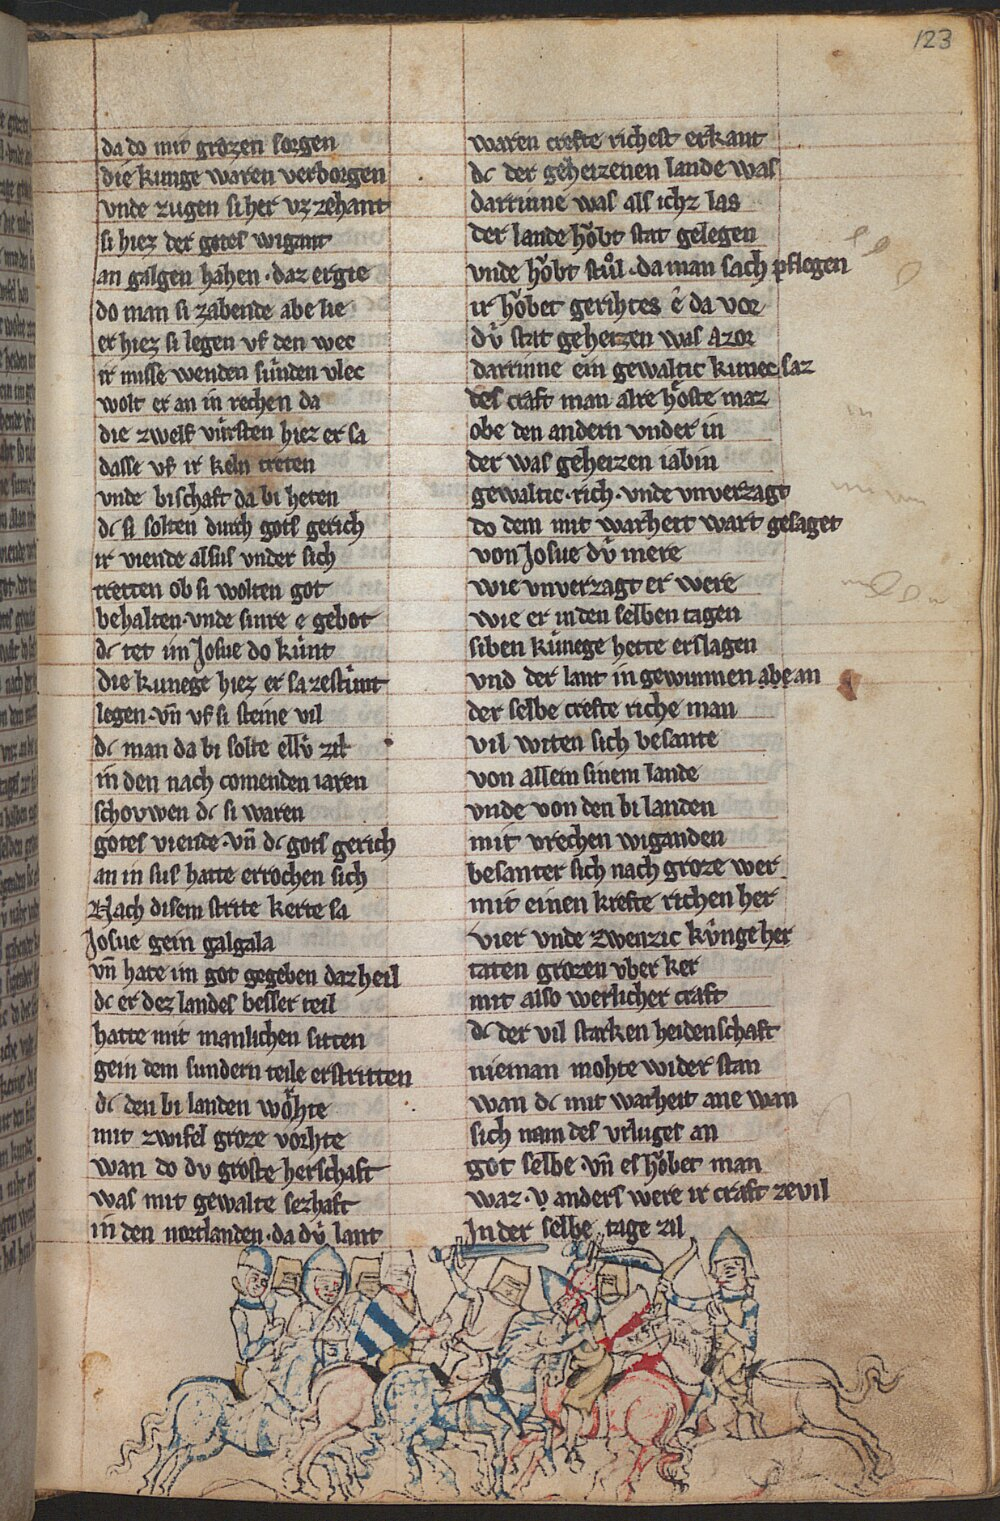 123
da do mit grozen sorgen
die kunge waren verborgen
vnde zugen si her vz zehant
si hiez der gotes wigant
an galgen hahen · daz ergie
do man si zabende abe lie
er hiez si legen vf den wec
ir misse wenden sünden vlec
wolt er an in rechen da
die zwelf vürsten hiez er sa
dasse vf ir keln treten
vnde bischaft da bi heten
dc si solten durch gots gerich
ir viende alsus vnder sich
tretten ob si wolten got
behalten · vnde sinre e gebot
dc tet im Josue do kunt
die kunege hiez er sa zestunt
legen · vn̄ vf si steine vil
dc man da bi solte ellv̓ zil
in den nach comenden iaren
schowen dc si waren
gotes viende · vn̄ dc gots gerich
an in sus hatte errochen sich
Nach disem strite kerte sa
Josue gein galgala
vn̄ hate im got gegeben daz heil
dc er dez landes besser teil
hatte mit manlichen sitten
gein dem sundern teile erstritten
dc den bi landen wohte
mit zwifel groze vorhte
wan do dv groste herschaft
was mit gewalte sezhaft
in den nortlanden · da dv̓ lant
waren crefte richest erkant
dc der geheizenen lande was
darinne was als ichz las
der lande hobt stat gelegen
vnde hobt stuͦl · da man sach pflegen
ir hobet gerihtes ê da vor
dv̓ stat geheizen was Azor
darinne ein gewaltic kunec saz
des craft man alre hoste maz
obe den andern vnder in
der was geheizen iabin
gewaltic · rich · vnde vnverzagt
do dem mit warheit wart gesaget
von Josue dv̓ mere
wie vnverzagt er were
wie er in den selben tagen
siben künege hette erslagen
vnd der lant in gewunnen abe an
der selbe crefte riche man
vil witen sich besante
von allem sinem lande
vnde von den bi landen
mit vrechen wiganden
besanter sich nach groze wer
mit einen krefte richen her
vier vnde zwenzic künge her
taten grozen vber ker
mit also werlicher craft
dc der vil starken heidenschaft
nieman mohte wider stan
wan dc mit warheit ane wan
sich nam des vrluges an
got selbe · vn̄ es hobet man
waz · v anders were ir craft ze vil
In der selbe tage zil